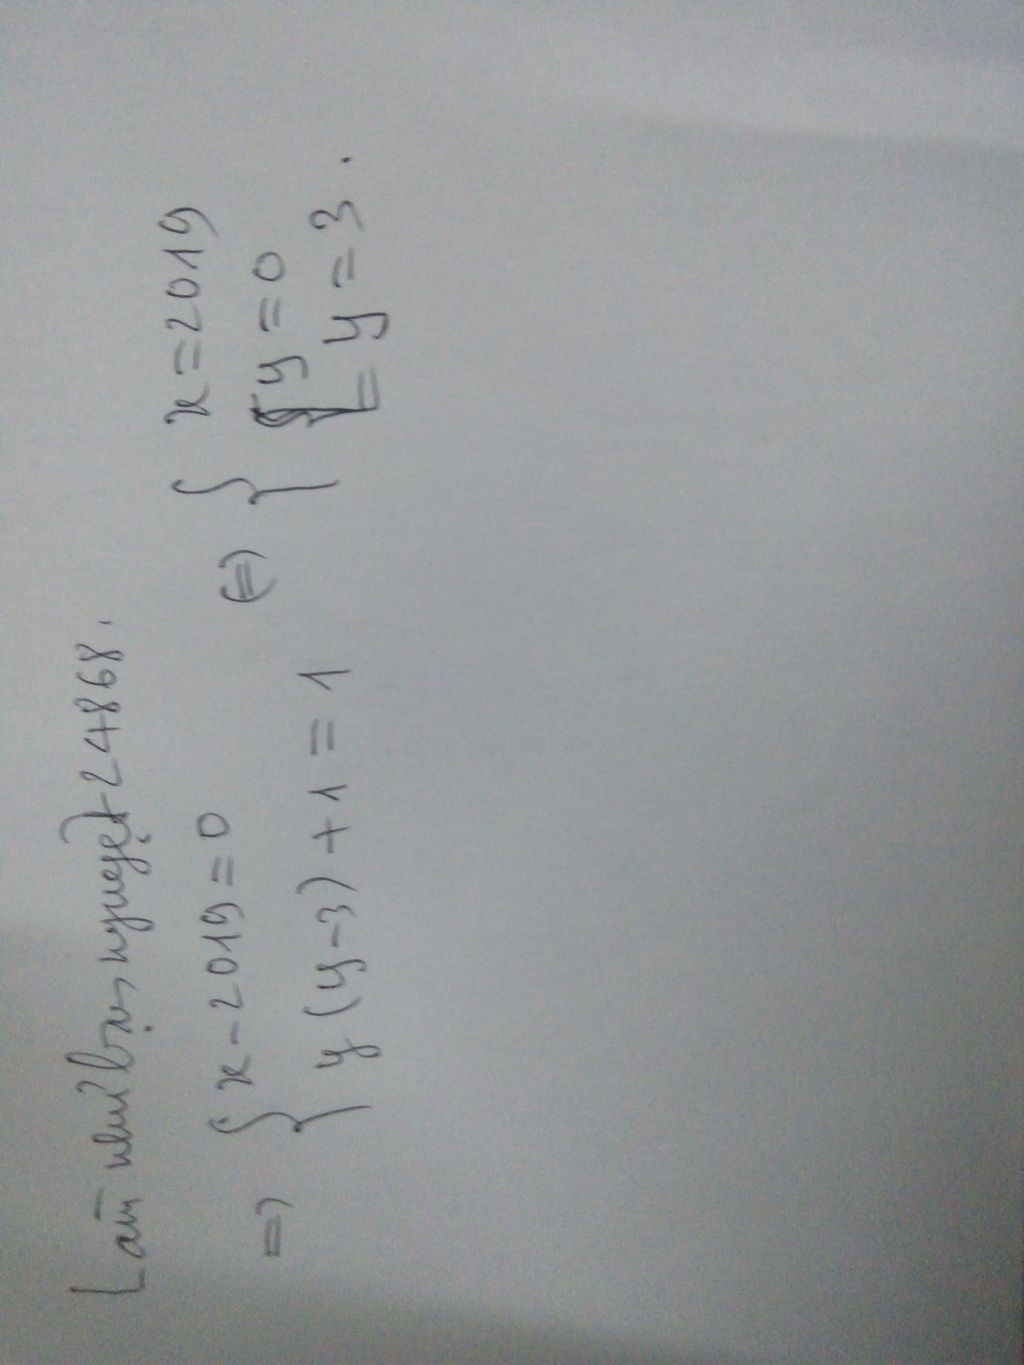 Làm như bạn nguyet24868.
=> { x - 2019 = 0
y(y-3) + 1 = 1
<=> { x = 2019
[ y = 0
y = 3.